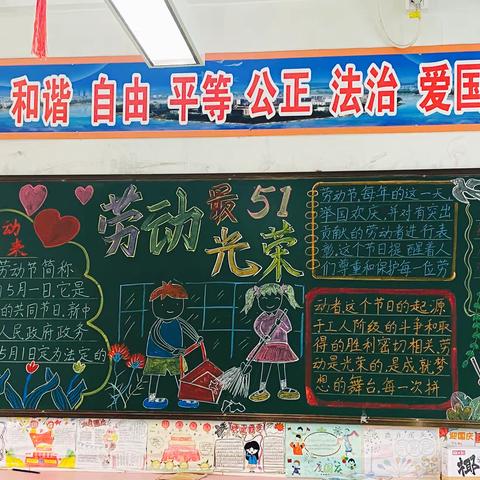 和谐 自由 平等 公正 法治 爱国
劳动最光荣
51
动
来
劳动节简称
5月一日,它是
的共同节日,新中
人民政府政务
5月1日定为法定的
劳动节,每年的这一天
举国欢庆,并对有突出
贡献的劳动者进行表
彰,这个节日提醒着人
们尊重和保护每一位劳
动者,这个节日的起源
于工人阶级的斗争和取
得的胜利密切相关,劳
动是光荣的,是成就梦
想的舞台,每一次拼